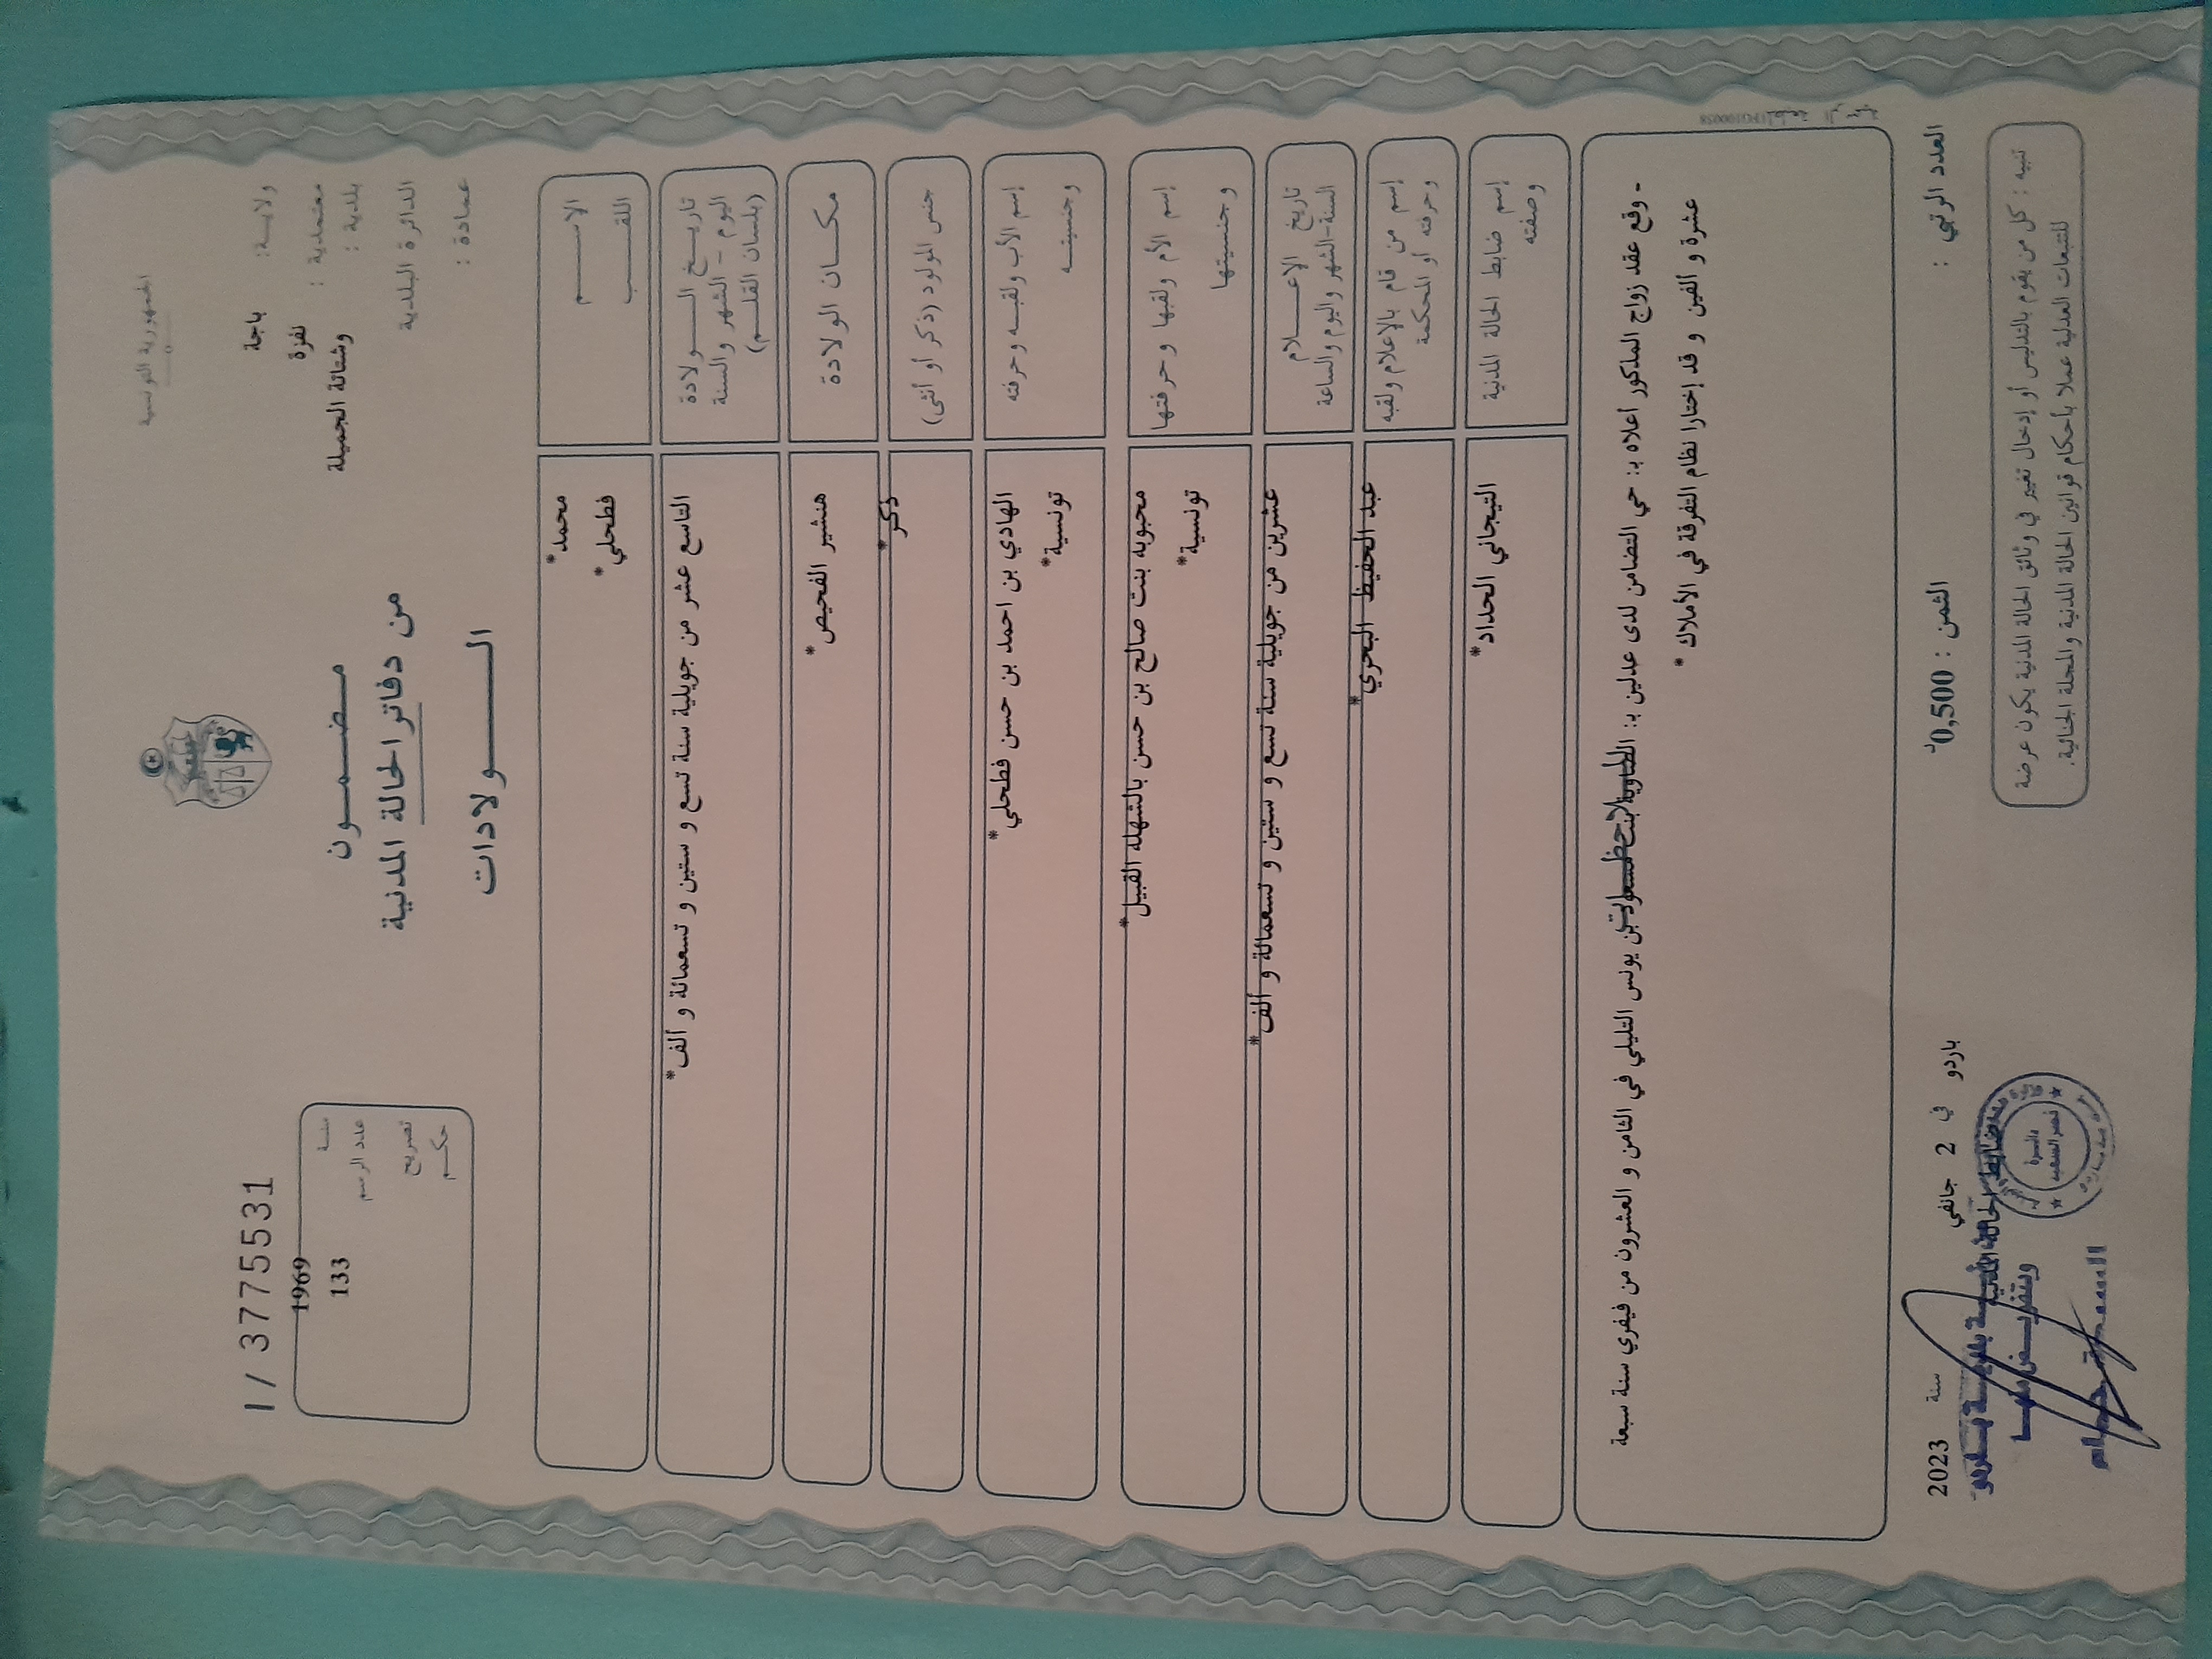 الجمهورية التونسية
ولايـــة: باجة
معتمدية : نفزة
بلدية : وشتاتة الجميلة
الدائرة البلدية
عمادة :
مـضـمــون
من دفاتر الحالة المدنية
الــــولادات
I / 3775531
سنـة 1969
عدد الرسم 133
تصريح
حكـــم
الاســـــم *محمد
اللقـــب *فطحلي
تاريــــخ الــــولادة
اليوم - الشهر والسنة
(بلسان القلــم)
التاسع عشر من جويلية سنة تسع و ستين و تسعمائة و ألف*
مكــان الولادة
هنشير الفحيص*
جنس المولود (ذكر أو أنثى)
ذكر*
إسم الأب ولقبــه وحرفته
وجنسيتــه
الهادي بن احمد بن حسن فطحلي*
تونسية*
إسم الأم ولقبها وحرفتها
وجنسيتها
محبوبه بنت صالح بن حسن بالشهله القبيل*
تونسية*
تاريخ الاعـــــلام
السنة-الشهر واليوم والساعة
عشرين من جويلية سنة تسع و ستين و تسعمائة و ألف*
إسم من قام بالاعلام ولقبه
وحرفته أو المحكمة
عبد الحفيظ البحري*
إسم ضابط الحالة المدنية
وصفته
التيجاني الحداد*
- وقع عقد زواج المذكور أعلاه بـ: حي التضامن لدى عدلين بـ: بن يونس التليلي في الثامن و العشرون من فيفري سنة سبعة
عشرة و ألفين و قد إختارا نظام التفرقة في الأملاك *
العدد الرتبي :
الثمن : 0,500د
باردو في 2 جانفي سنة 2023
ضابط الحالة المدنية
وبتفويــض منهــا
تنبيه : كل من يقوم بالتدليس أو إدخال تغيير في وثائق الحالة المدنية يكون عرضة
للتتبعات العدلية عملا بأحكام قوانين الحالة المدنية والمجلة الجنائية.